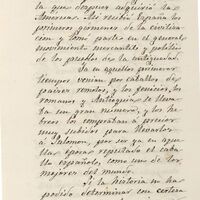 la que despues adquirió la
Americas. Asi recibió España los
primeros gérmenes de la civiliza
cion y tomó parte en el general
movimiento mercantil y politico
de los pueblos de la antigüedad.
Ya en aquellos primeros
tiempos venian por caballos de
paises remotos, y los fenicios, los
romanos y
ban en gran número, y los he
breos los compraban á precios
muy subidos para llevarlos
á Salomon, por ser ya en
aquella época reputado el caba
llo español, como uno de los
mejores del mundo.
Si la historia no ha
podido determinar con certeza